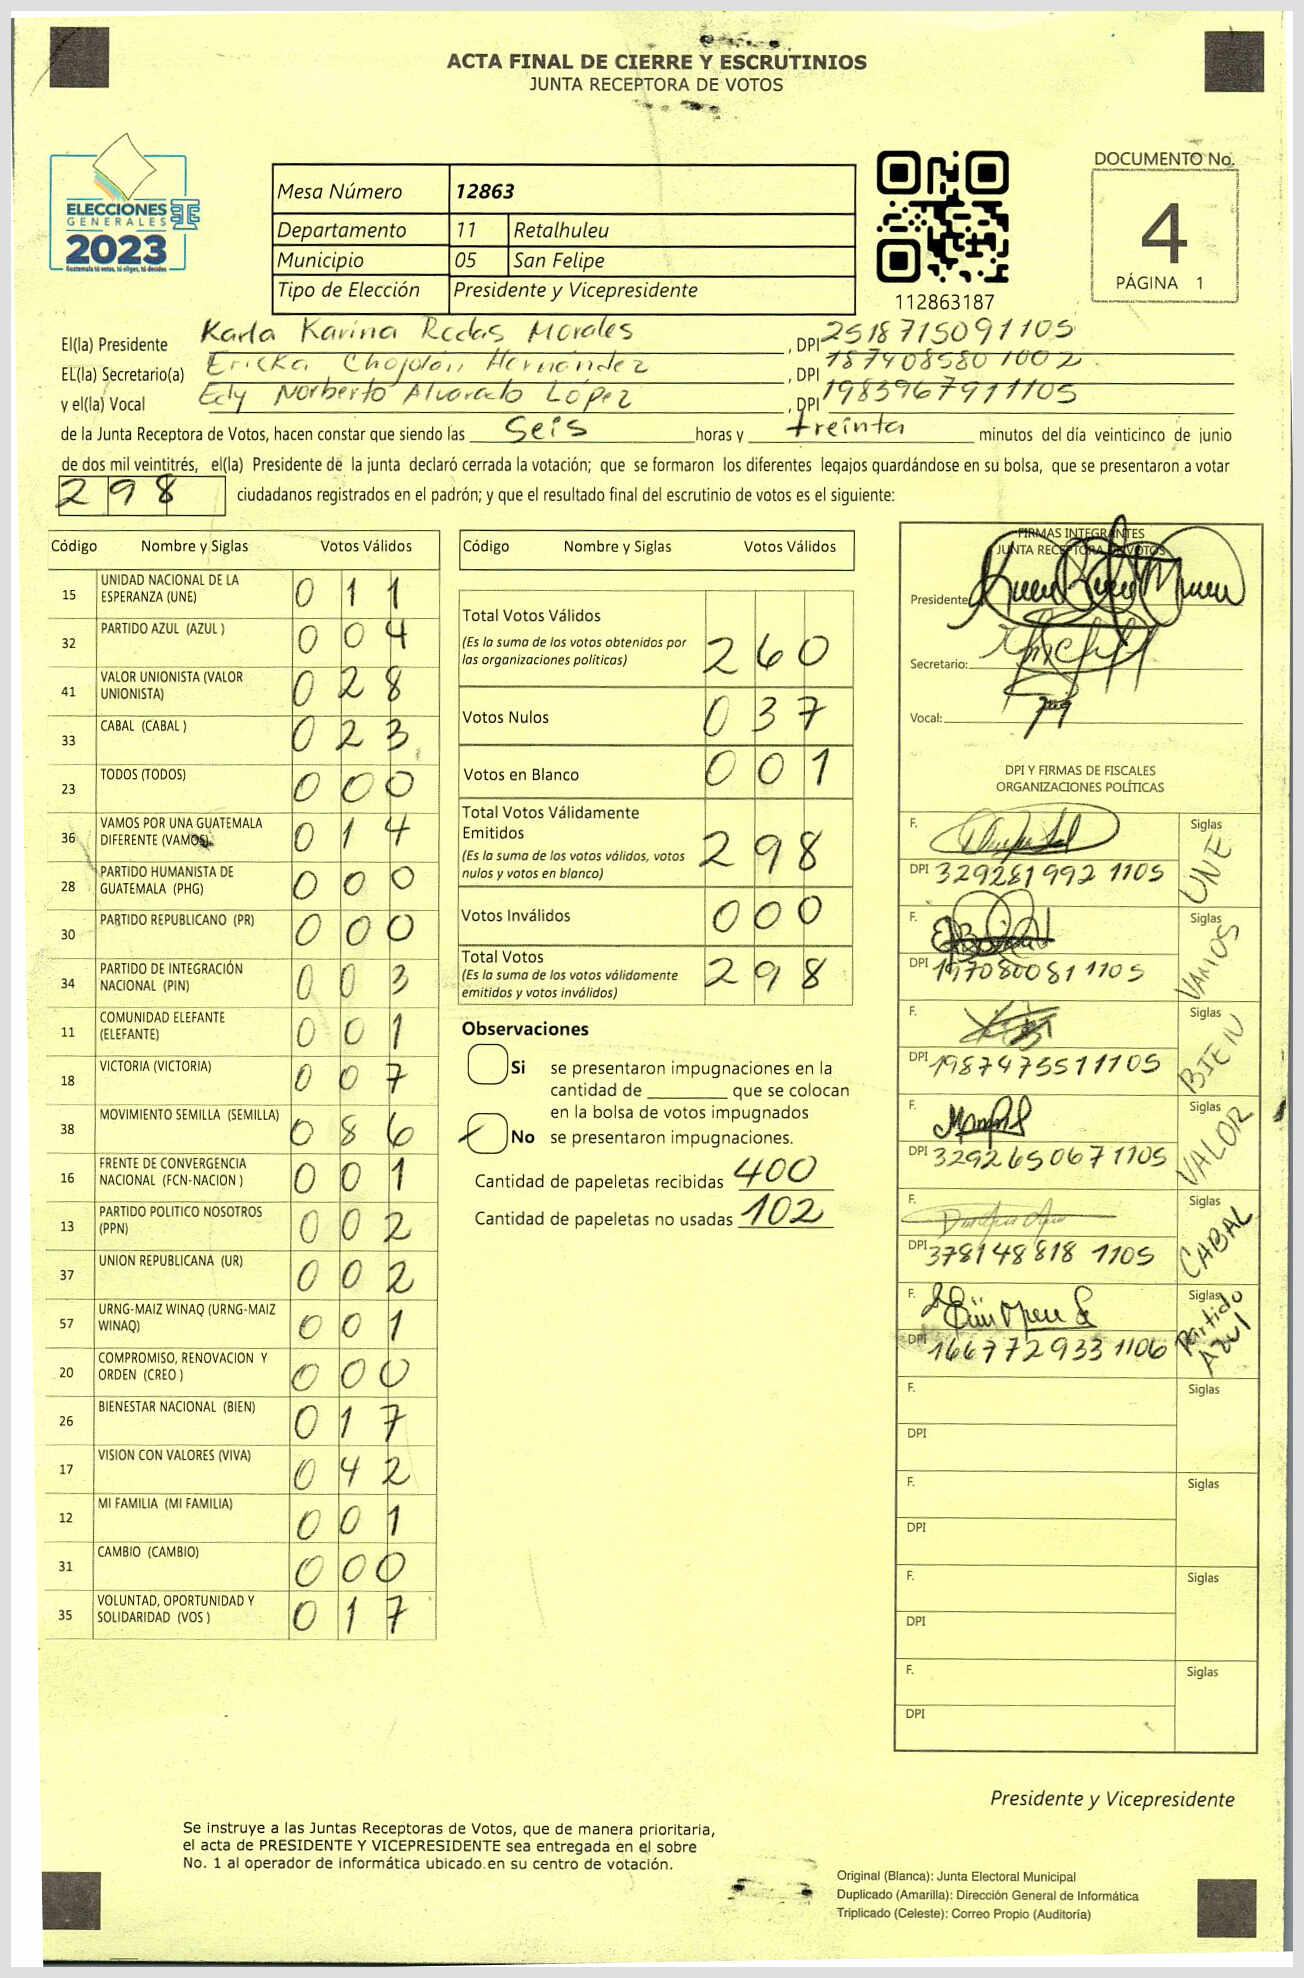 ACTA FINAL DE CIERRE Y ESCRUTINIOS
JUNTA RECEPTORA DE VOTOS
ELECCIONES
GENERALES
2023
Guatemala tú votas, tú eliges, tú decides
Mesa Número 12863
Departamento 11 Retalhuleu
Municipio 05 San Felipe
Tipo de Elección Presidente y Vicepresidente
112863187
DOCUMENTO No.
4
PÁGINA 1
El(la) Presidente Karla Karina Rodas Morales, DPI 2518715091105
EL(la) Secretario(a) Ericka Chojolán Hernández, DPI 187408580 1002
y el(la) Vocal Edy Norberto Alvarado López, DPI 1983967911105
de la Junta Receptora de Votos, hacen constar que siendo las Seis horas y treinta minutos del día veinticinco de junio
de dos mil veintitrés, el(la) Presidente de la junta declaró cerrada la votación; que se formaron los diferentes legajos guardándose en su bolsa, que se presentaron a votar
298 ciudadanos registrados en el padrón; y que el resultado final del escrutinio de votos es el siguiente:
Código Nombre y Siglas Votos Válidos
15 UNIDAD NACIONAL DE LA ESPERANZA (UNE) 011
32 PARTIDO AZUL (AZUL ) 004
41 VALOR UNIONISTA (VALOR UNIONISTA) 028
33 CABAL (CABAL ) 023
23 TODOS (TODOS) 000
36 VAMOS POR UNA GUATEMALA DIFERENTE (VAMOS) 014
28 PARTIDO HUMANISTA DE GUATEMALA (PHG) 000
30 PARTIDO REPUBLICANO (PR) 000
34 PARTIDO DE INTEGRACIÓN NACIONAL (PIN) 003
11 COMUNIDAD ELEFANTE (ELEFANTE) 001
18 VICTORIA (VICTORIA) 007
38 MOVIMIENTO SEMILLA (SEMILLA) 086
16 FRENTE DE CONVERGENCIA NACIONAL (FCN-NACION ) 001
13 PARTIDO POLITICO NOSOTROS (PPN) 002
37 UNION REPUBLICANA (UR) 002
57 URNG-MAIZ WINAQ (URNG-MAIZ WINAQ) 001
20 COMPROMISO, RENOVACION Y ORDEN (CREO ) 000
26 BIENESTAR NACIONAL (BIEN) 017
17 VISION CON VALORES (VIVA) 042
12 MI FAMILIA (MI FAMILIA) 001
31 CAMBIO (CAMBIO) 000
35 VOLUNTAD, OPORTUNIDAD Y SOLIDARIDAD (VOS ) 017
Código Nombre y Siglas Votos Válidos
Total Votos Válidos 260
(Es la suma de los votos obtenidos por
las organizaciones políticas)
Votos Nulos 037
Votos en Blanco 001
Total Votos Válidamente
Emitidos 298
(Es la suma de los votos válidos, votos
nulos y votos en blanco)
Votos Inválidos 000
Total Votos 298
(Es la suma de los votos válidamente
emitidos y votos inválidos)
Observaciones
Si se presentaron impugnaciones en la
cantidad de ________ que se colocan
en la bolsa de votos impugnados
No se presentaron impugnaciones.
Cantidad de papeletas recibidas 400
Cantidad de papeletas no usadas 102
FIRMAS INTEGRANTES
JUNTA RECEPTORA DE VOTOS
Presidente
Secretario:
Vocal:
DPI Y FIRMAS DE FISCALES
ORGANIZACIONES POLÍTICAS
F. Siglas UNE
DPI 329281992 1105
F. Siglas VAMOS
DPI 197080081 1105
F. Siglas BIEN
DPI 1987475511105
F. Siglas VALOR
DPI 3292650671105
F. Siglas CABAL
DPI 378148818 1105
F. Siglas Partido AZUL
DPI 166772933 1106
F. Siglas
DPI
F. Siglas
DPI
F. Siglas
DPI
F. Siglas
DPI
Presidente y Vicepresidente
Se instruye a las Juntas Receptoras de Votos, que de manera prioritaria,
el acta de PRESIDENTE Y VICEPRESIDENTE sea entregada en el sobre
No. 1 al operador de informática ubicado en su centro de votación.
Original (Blanca): Junta Electoral Municipal
Duplicado (Amarilla): Dirección General de Informática
Triplicado (Celeste): Correo Propio (Auditoría)